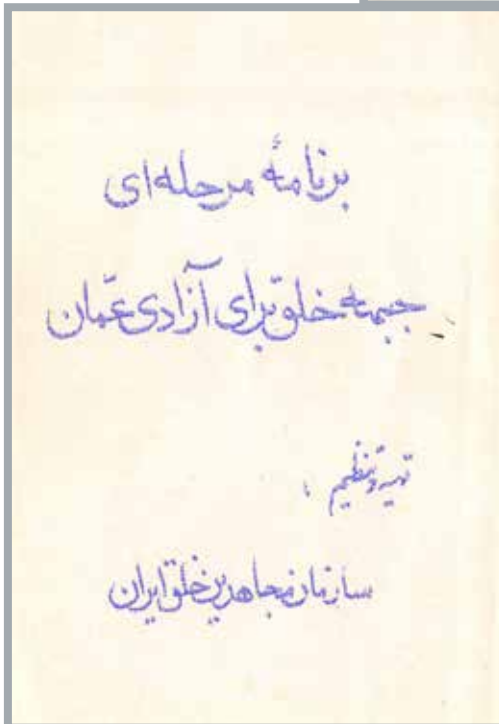 برنامهٔ مرحله‌ای
جبهه خلق برای آزادی عمّان
تهیه و تنظیم :
سازمان مجاهدین خلق ایران